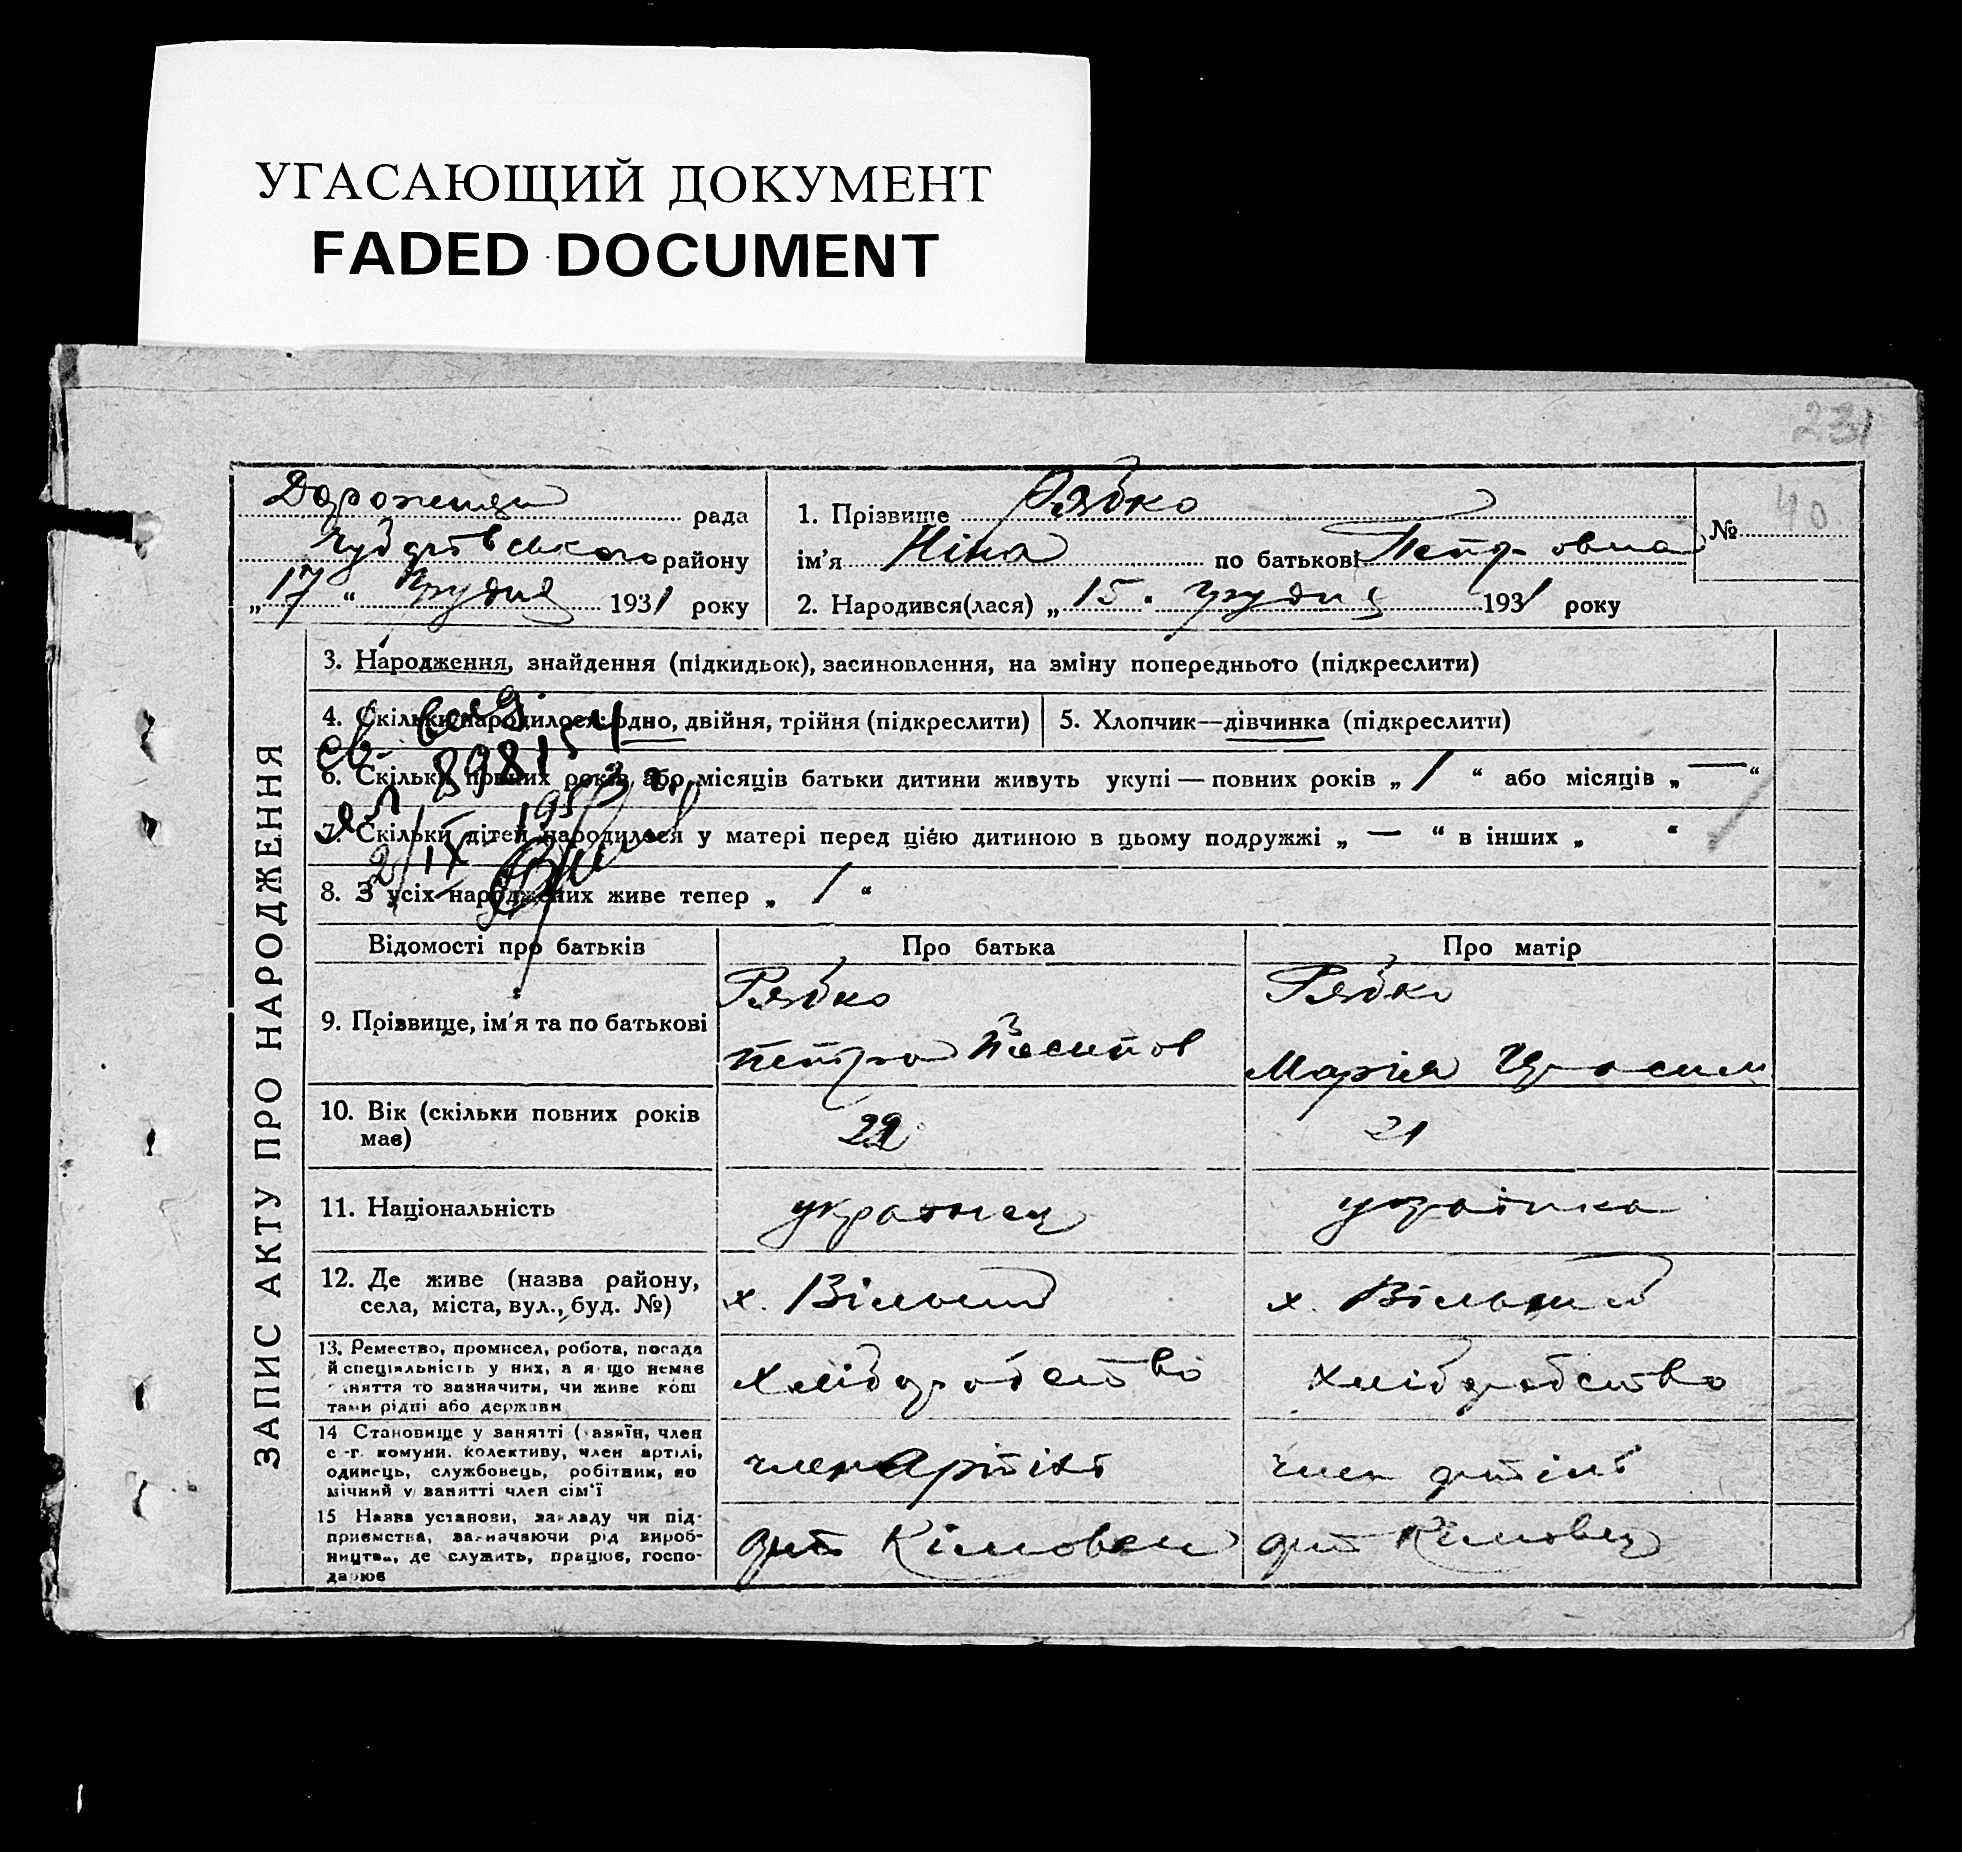 УГАСАЮЩИЙ ДОКУМЕНТ
FADED DOCUMENT
231
рада
району
„ 17 “ Грудня 1931 року
1. Прізвище Рябко
ім'я Ніна по батькові Петровна
№ 40
2. Народився(лася) „ 15 “ грудня 1931 року
ЗАПИС АКТУ ПРО НАРОДЖЕННЯ
3. Народження, знайдення (підкидьок), засиновлення, на зміну попереднього (підкреслити)
4. Скільки народилося: одно, двійня, трійня (підкреслити)
5. Хлопчик—дівчинка (підкреслити)
6. Скільки повних років або місяців батьки дитини живуть укупі — повних років „ 1 “ або місяців „ — “
7. Скільки дітей народилося у матері перед цією дитиною в цьому подружжі „ — “ в інших „ “
8. З усіх народжених живе тепер „ 1 “
Відомості про батьків
Про батька
Про матір
9. Прізвище, ім'я та по батькові
Рябко
Петро
Рябко
Марія
10. Вік (скільки повних років має)
21
11. Національність
українец
українка
12. Де живе (назва району,
села, міста, вул., буд. №)
х. Вільний
х. Вільний
13. Ремество, промисел, робота, посада
й спеціяльність у них, а як що немає
заняття то зазначити, чи живе кош
тами рідні або держави
хлібробство
хлібробство
14 Становище у занятті (хазяїн, член
с.-г. комуни, колективу, член артілі,
одинець, службовець, робітник, по
мічний у занятті член сім'ї
член Артілі
член артілі
15 Назва установи, закладу чи під-
приємства, зазначаючи рід вироб-
ництва, де служить, працює, госпо-
дарює
арт Кімовец
арт Кімовец